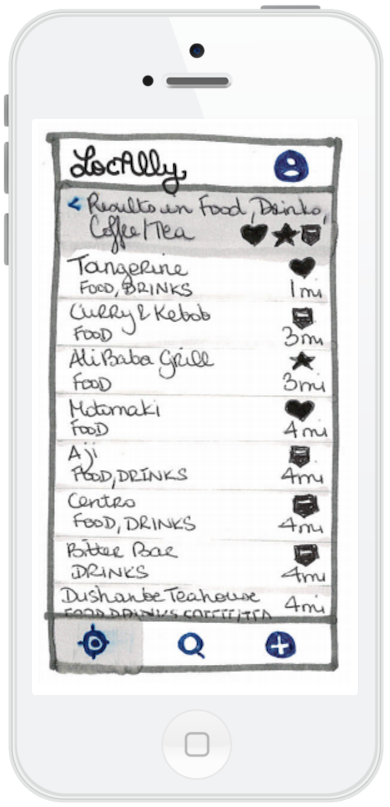 LocAlly
< Results in Food, Drinks,
Coffee/Tea
Tangerine
FOOD, DRINKS
1mi
Curry & Kebob
FOOD
3mi
Ali Baba Grill
FOOD
3mi
Motomaki
FOOD
4mi
Aji
FOOD, DRINKS
4mi
Centro
FOOD, DRINKS
4mi
Bitter Bar
DRINKS
4mi
Dushanbe Teahouse
4mi
FOOD DRINKS COFFEE/TEA